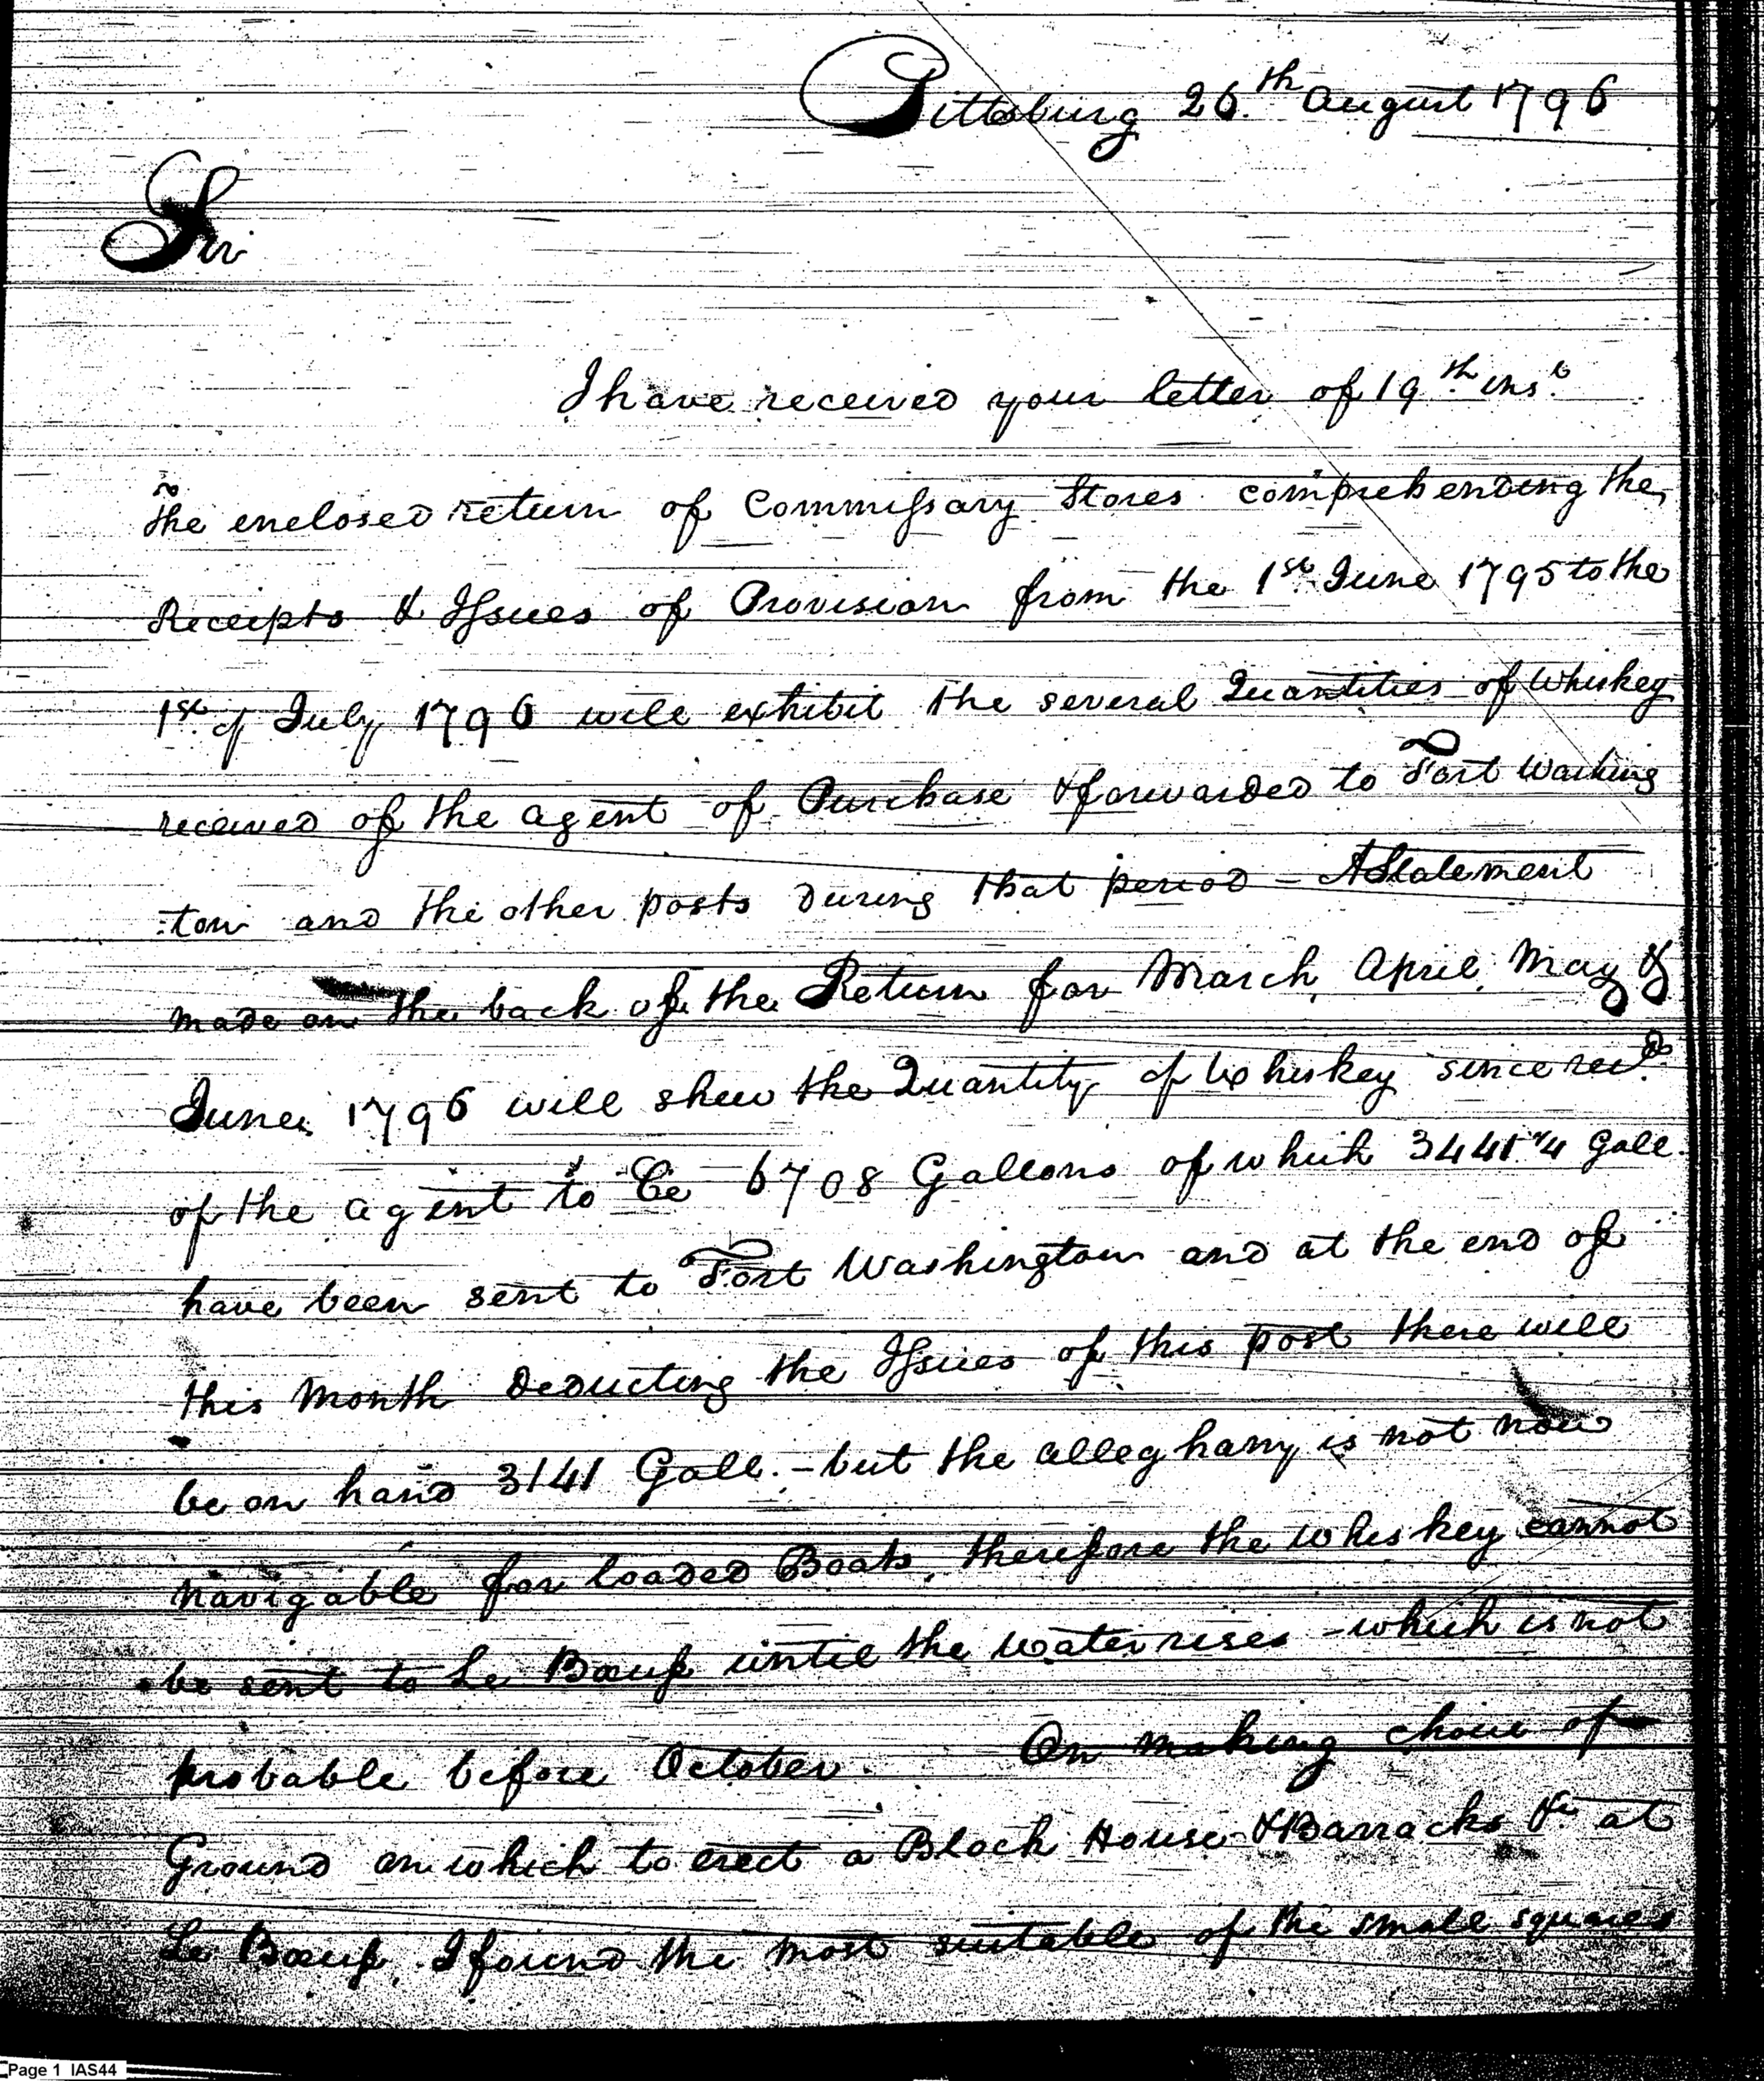 Pittsburg 26th August 1796
Sir
I have received your letter of 19th inst
The enclosed return of Commissary Stores comprehending the
Receipts & Issues of Provision from the 1st June 1795 to the
1st of July 1796 will exhibit the several Quantities of Whiskey
received of the agent of Purchase & forwarded to Fort Washing
:ton and the other posts During that period – A Statement
made on the back of the Return for March, April, May &
June, 1796 will shew the Quantity of Whiskey since recd
of the agent to be 6708 Gallons of which 3441 Gall.
have been sent to Fort Washington and at the end of
this Month Deducting the Issues of this post there will
be on hand 3141 Gall. – but the alleghany is not now
navigable for loaded Boats, therefore the whiskey cannot
be sent to Le Bœuf until the water rises – which is not
probable before October. On making choice of
Ground on which to erect a Block House & Barracks &c at
Le Bœuf, I found the most suitable of the small squares
Page 1 IAS44